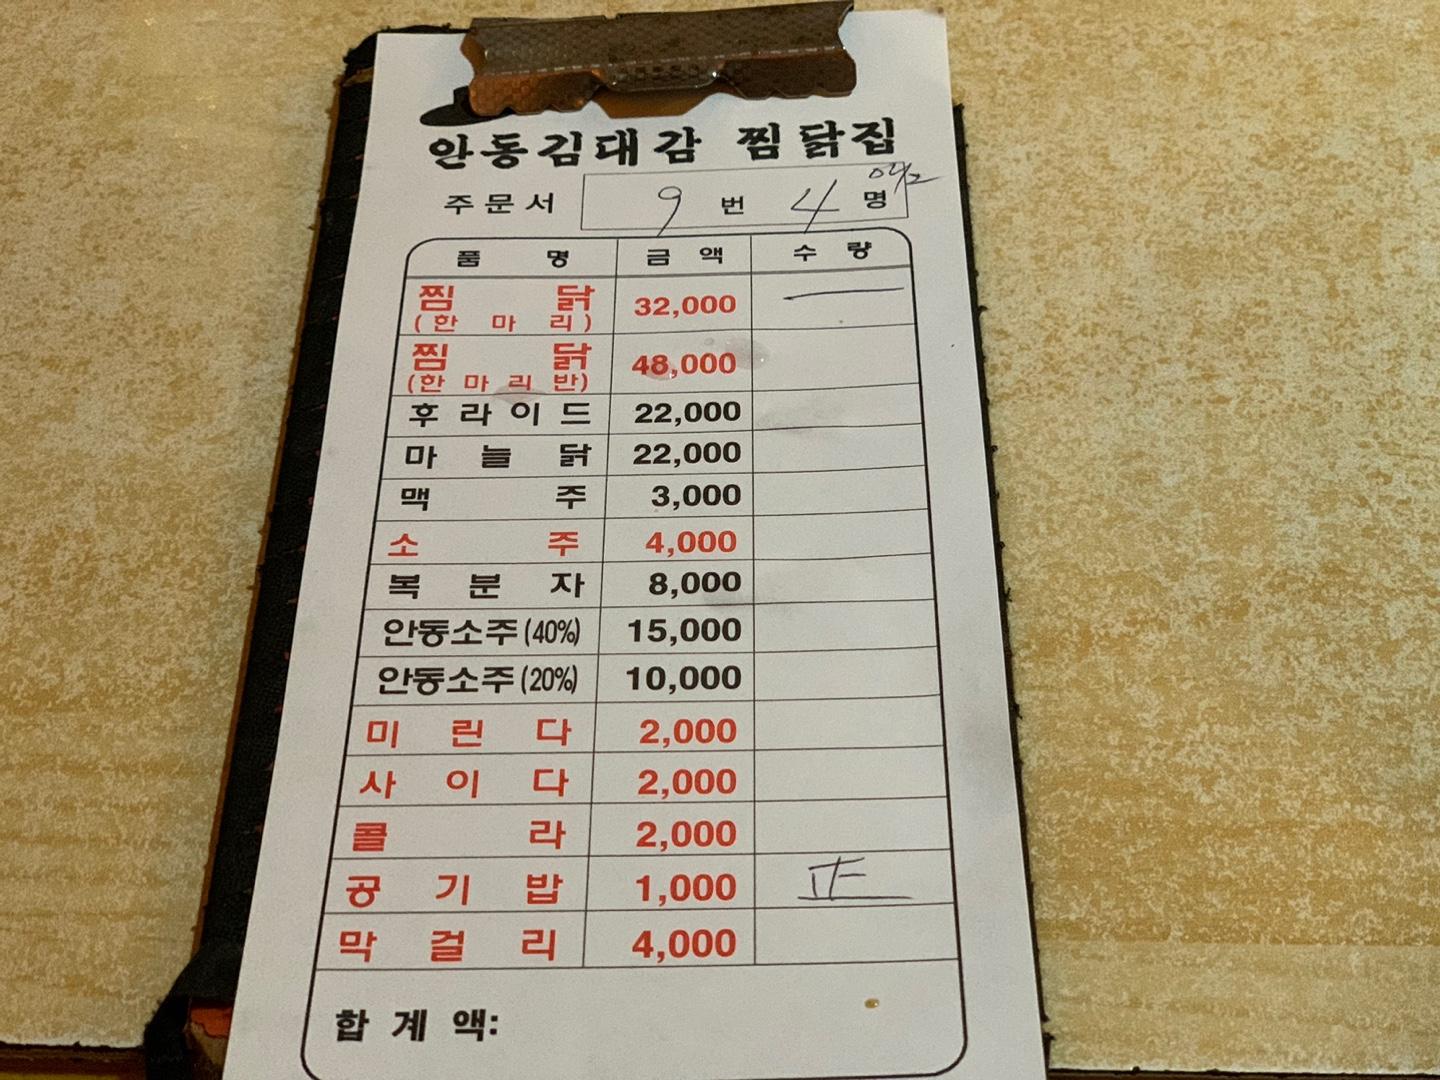 안동김대감 찜닭집
주문서 9 번 4 명
품명 금액 수량
찜닭 (한마리) 32,000 一
찜닭 (한마리반) 48,000
후라이드 22,000
마늘닭 22,000
맥주 3,000
소주 4,000
복분자 8,000
안동소주(40%) 15,000
안동소주(20%) 10,000
미린다 2,000
사이다 2,000
콜라 2,000
공기밥 1,000 正
막걸리 4,000
합계액: